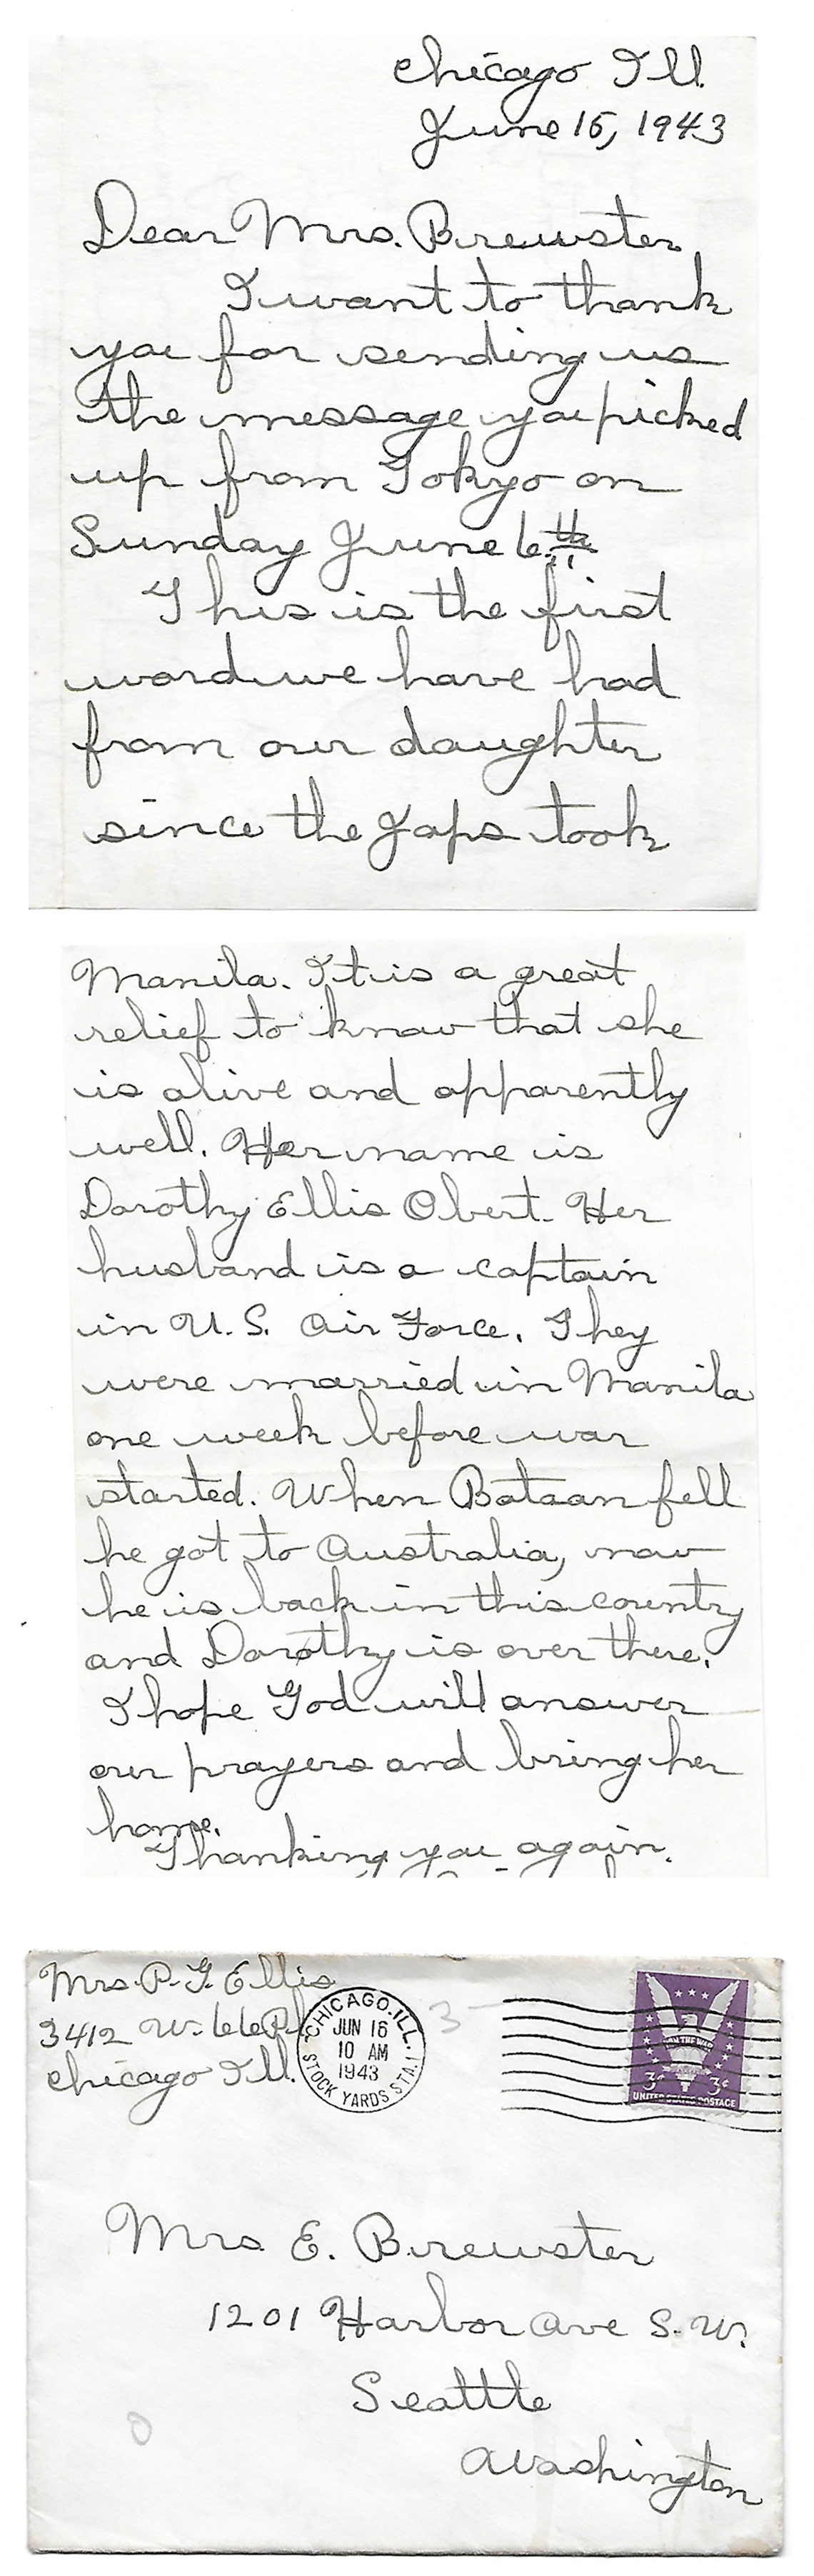 Chicago Ill.
June 15, 1943
Dear Mrs. Brewster
I want to thank
you for sending us
the message you picked
up from Tokyo on
Sunday June 6th
This is the first
word we have had
from our daughter
since the Japs took
Manila. It is a great
relief to know that she
is alive and apparently
well. Her name is
Dorothy Ellis Obert. Her
husband is a captain
in U.S. Air Force. They
were married in Manila
one week before war
started. When Bataan fell
he got to Australia, now
he is back in this country
and Dorothy is over there.
I hope God will answer
our prayers and bring her
home.
Thanking you again.
Mrs. P. G. Ellis
3412 W. 66 Pl
Chicago Ill.
CHICAGO, ILL.
JUN 16
10 AM
1943
STOCK YARDS STA. 1
3
WIN THE WAR
3¢ 3¢
UNITED STATES POSTAGE
Mrs E. Brewster
1201 Harbor Ave S.W.
Seattle
Washington